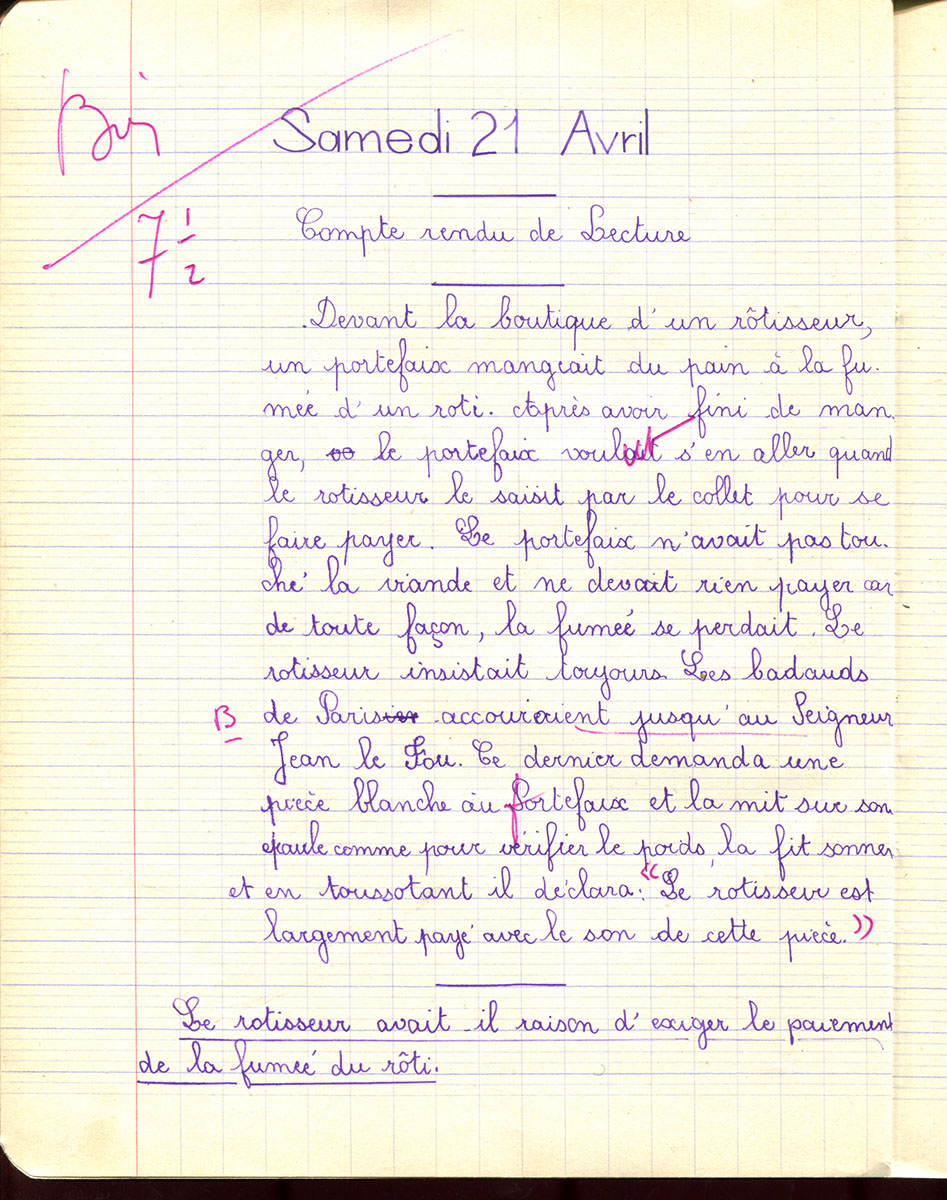 Bien
Samedi 21 Avril
7 1/2
Compte rendu de Lecture
Devant la boutique d'un rôtisseur,
un portefaix mangeait du pain à la fu.
meé d'un roti. Après avoir fini de man.
ger, le portefaix voulait s'en aller quand
le rotisseur le saisit par le collet pour se
faire payer. Le portefaix n'avait pas tou.
ché la viande et ne devait rien payer car
de toute façon, la fumeé se perdait. Le
rotisseur insistait toujours. Les badauds
B de Paris accouraient jusqu'au Seigneur
Jean le Fou. Ce dernier demanda une
pièce blanche au portefaix et la mit sur son
épaule comme pour vérifier le poids, la fit sonner
et en toussotant il déclara: « Le rotisseur est
largement payé avec le son de cette pièce. »
Le rotisseur avait-il raison d'exiger le paiement
de la fumeé du rôti.